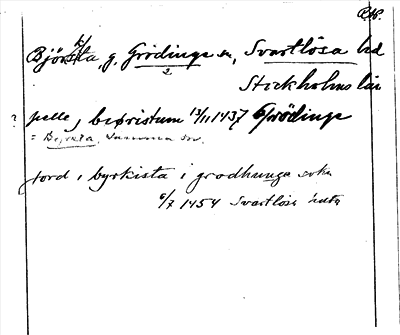 RAP.
Björsta, g. Grödinge sn, Svartlösa hd
Stockholms län
? pelle, beøristum 13/11 1437 Grödinge
= Bejsta, samma sn.
tord i byrkista i grodhunga sokn
6/7 1454 Svartlösa